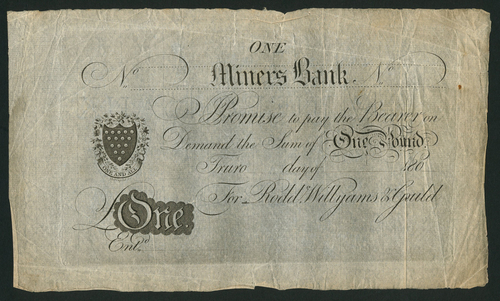 ONE
No Miners Bank. No
I Promise to pay the Bearer on
Demand the Sum of One Pound
Truro day of 180
ONE AND ALL
For Rodd, Willyams & Gould
£One
Entd